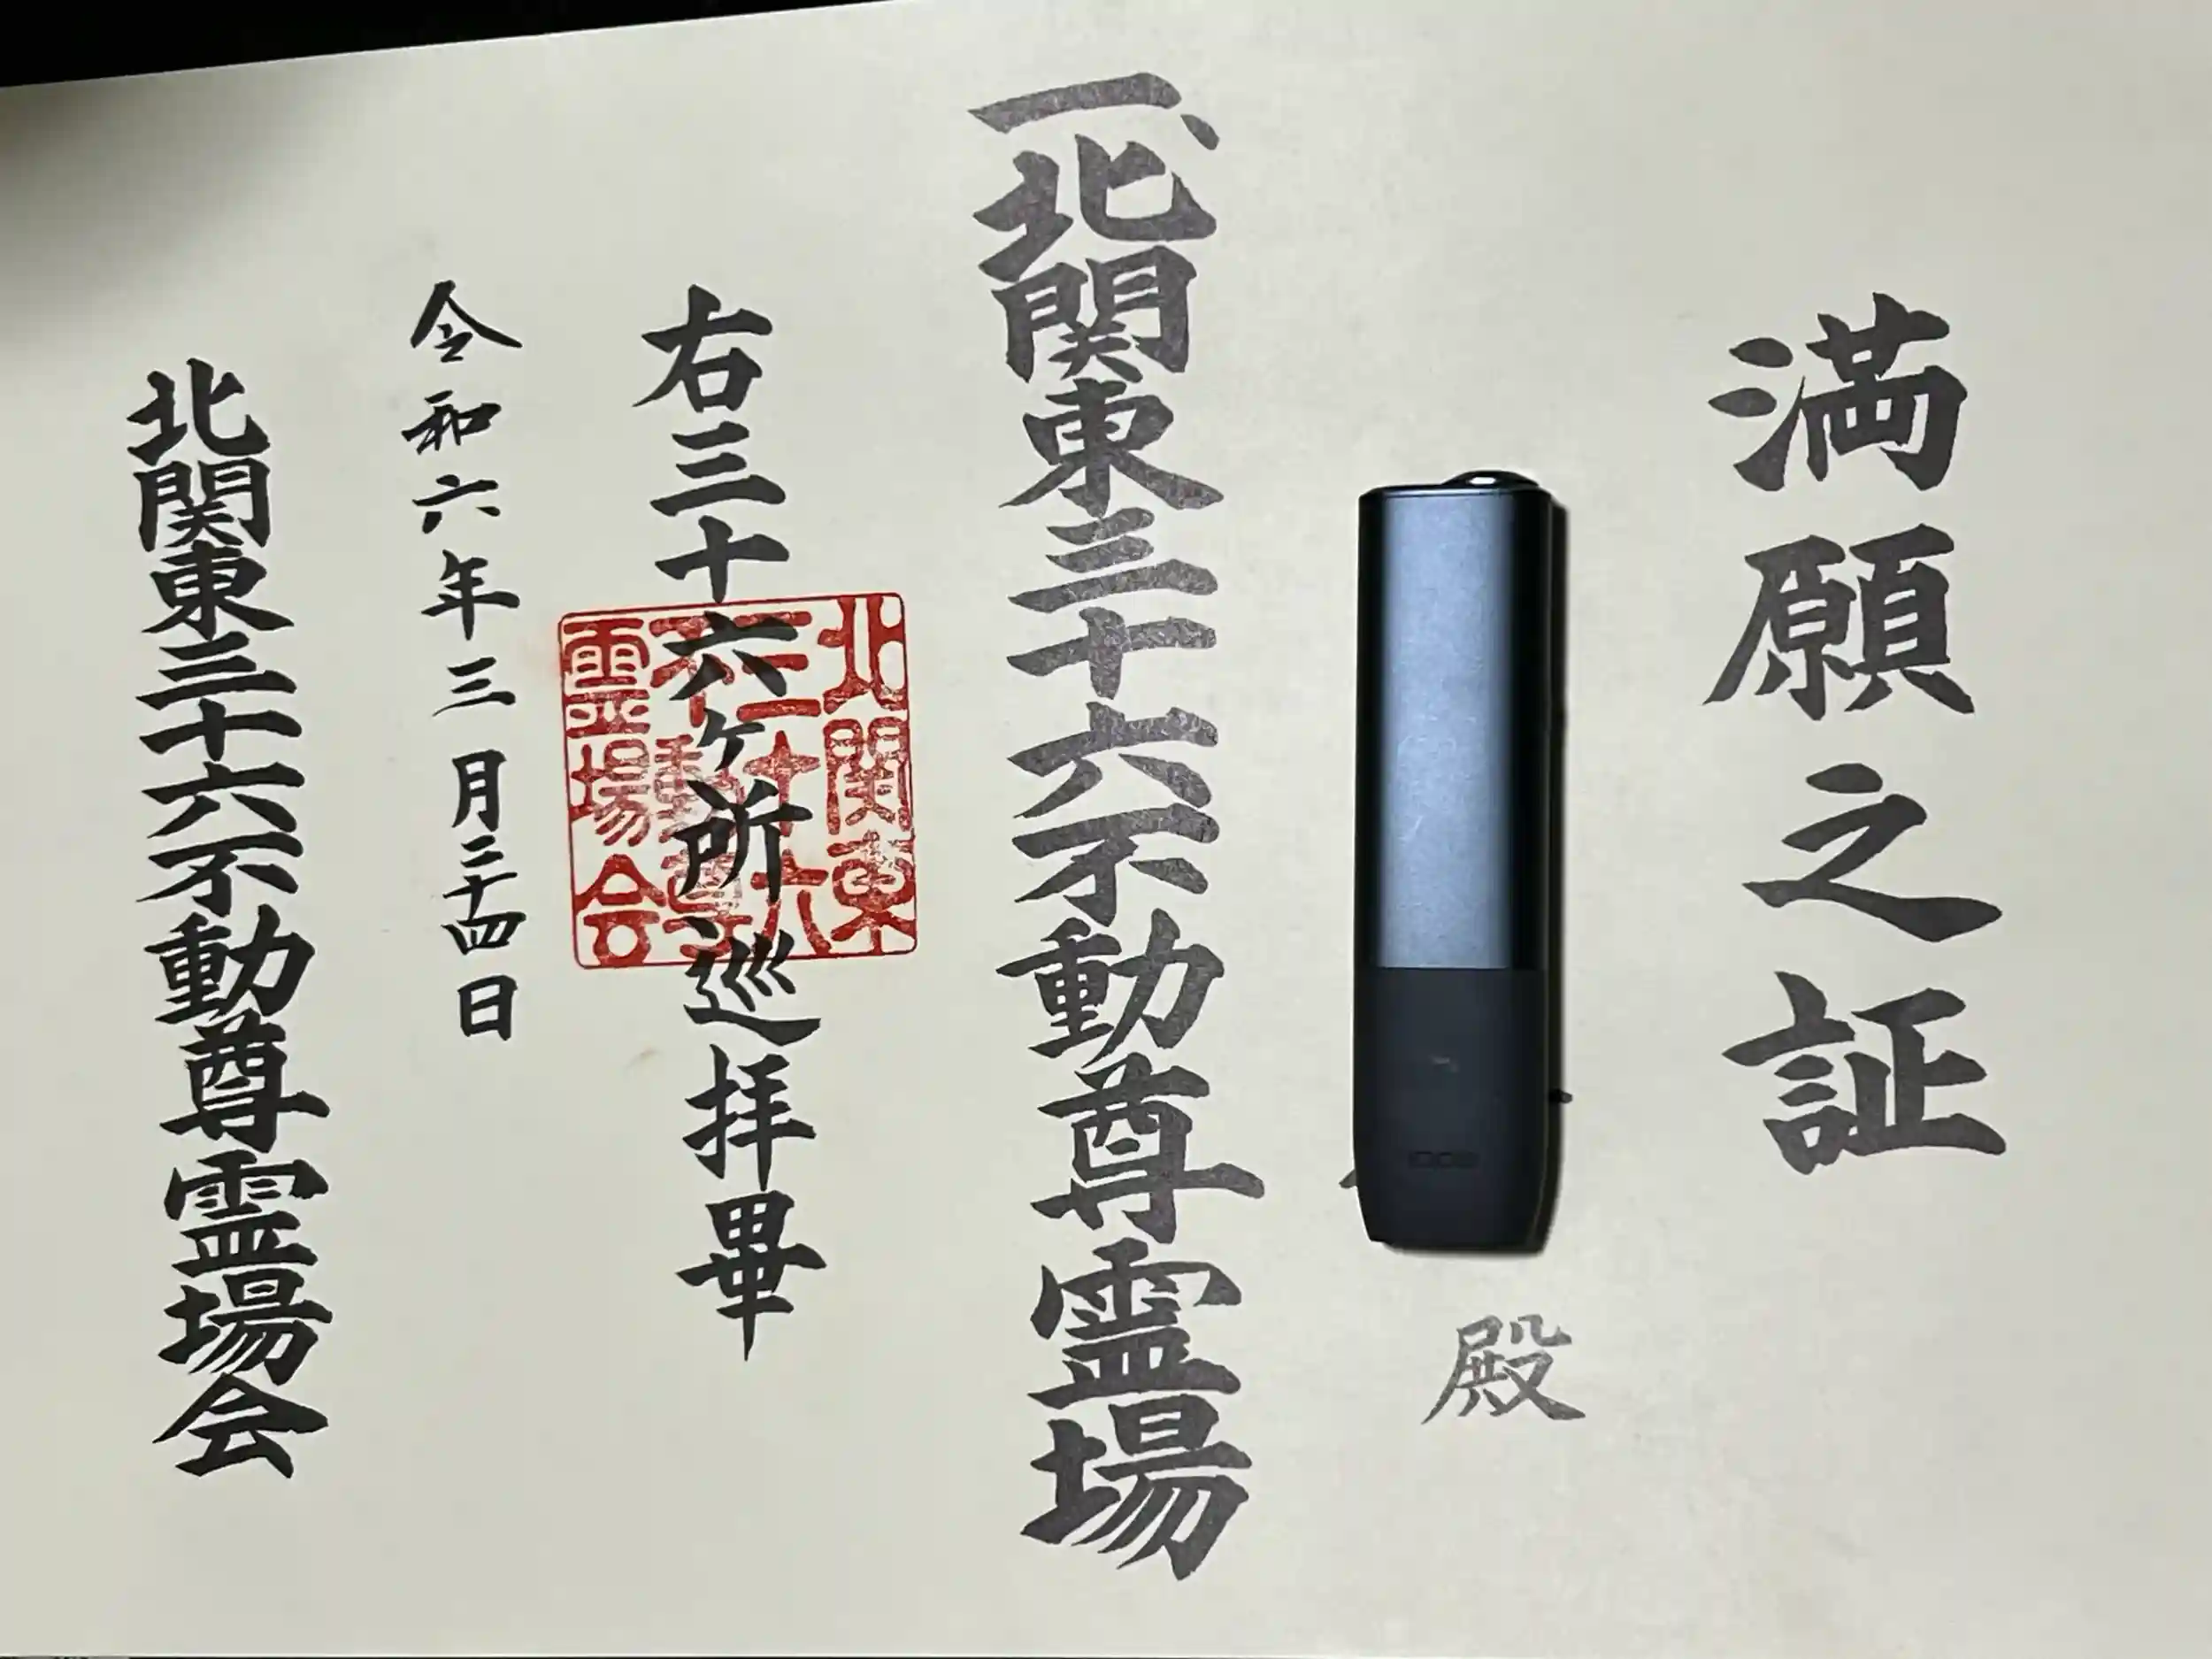 満願之証
殿
一、北関東三十六不動尊霊場
右三十六ヶ所巡拝畢
北関東
三十六
不動尊
霊場会
令和六年三月二十四日
北関東三十六不動尊霊場会